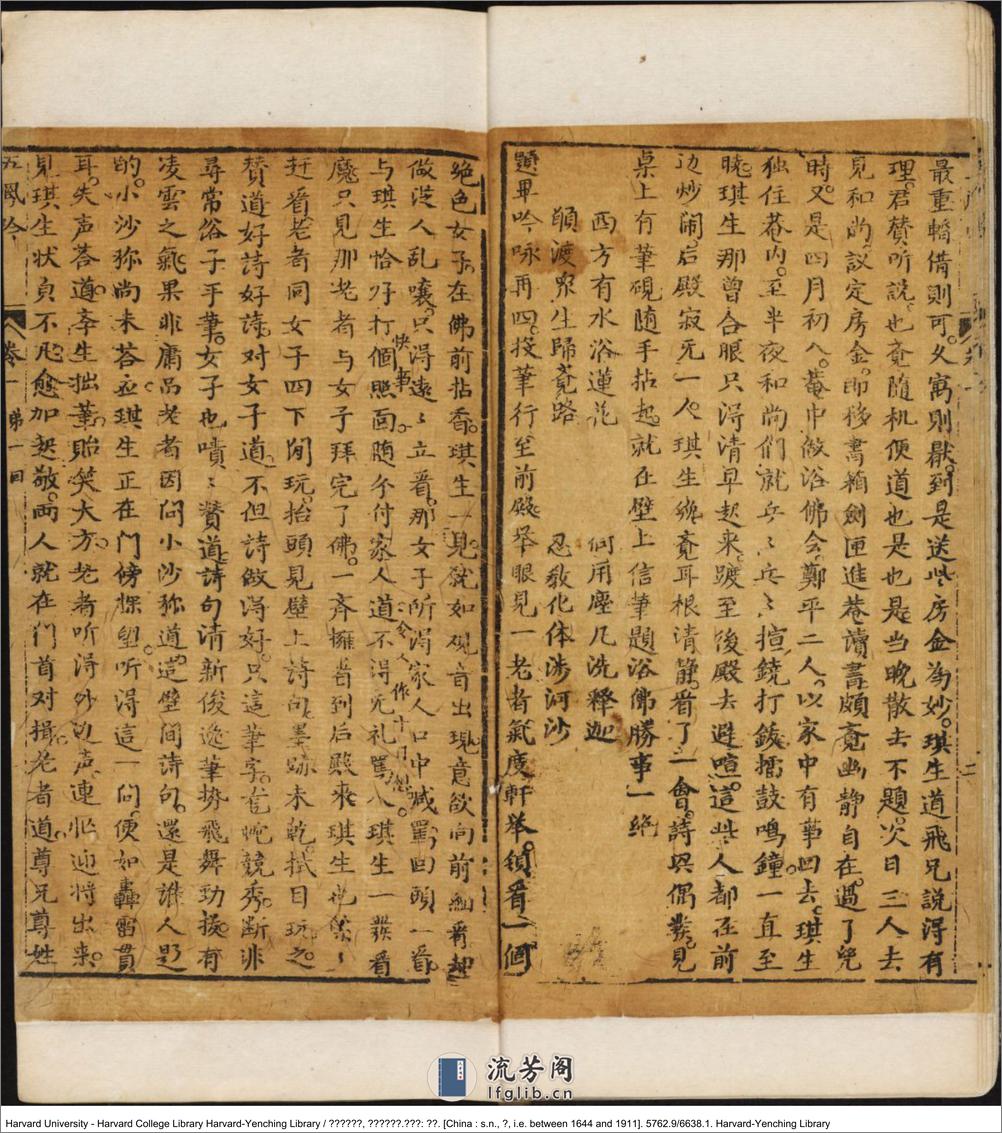 最重轎借則可。久寓則厭。到是送些房金為妙。琪生道飛兄説得有
理。君贊听説。也竟随机便道也是也是。当晚散去不題。次日三人去
見和尚。議定房金。即移書箱劍匣進菴讀書。頗竟幽静自在。過了
時。又是四月初八。菴中做浴佛会。鄭平二人。以家中有事回去。琪生
独住菴内。至半夜和尚们就乒乒乓乓揎鐃打鈸擂鼓鳴鐘。一直至
曉。琪生那曾合眼。只得清早起来。踱至後殿去避喧。這些人都在前
边炒闹。后殿寂无一人。琪生纔竟耳根清静。看了一會。詩興偶發。見
桌上有筆硯随手拈起。就在壁上信筆題浴佛勝事一絶
西方有水浴蓮花 何用塵凡洗釋迦
願渡众生歸竟路 忍教化体涉河沙
題畢吟咏再四。投筆行至前殿。举眼見一老者氣度軒举。領着一個
絶色女子。在佛前拈香。琪生一見。就如观音出現。意欲向前細看。趕
做淫人乱嚷。只得遠遠立看。那女子所得家人口中喊罵。回頭一看。
快事
与琪生恰好打個照面。随分付家人道不得无礼罵人。琪生一發着
令人作十日想。
魔。只見那老者与女子拜完了佛。一齊擁着到后殿来。琪生也緊緊
赶看。老者同女子四下閒玩。抬頭見壁上詩句。墨跡未乾。拭目玩之。
贊道好詩好詩。对女子道。不但詩做得好。只這筆字。龍蛇競秀。断非
尋常俗子手筆。女子也嘖嘖贊道。詩句清新俊逸。筆势飛舞劲拔。有
凌雲之氣。果非庸品。老者因问小沙弥道。這壁间詩句。還是誰人題
的。小沙弥尚未荅应。琪生正在门傍探望。听得這一问。便如轟雷貫
耳。失声荅道。李生拙筆。貽笑大方。老者听得外边声連忙迎将出来。
見琪生状貞不凡。愈加起敬。兩人就在门首对揖。老者道。尊兄尊姓
五鳳吟 卷一 第一回
二
流芳阁
lfglib.cn
Harvard University - Harvard College Library Harvard-Yenching Library / ??????, ??????.???: ??. [China : s.n., ?, i.e. between 1644 and 1911]. 5762.9/6638.1. Harvard-Yenching Library